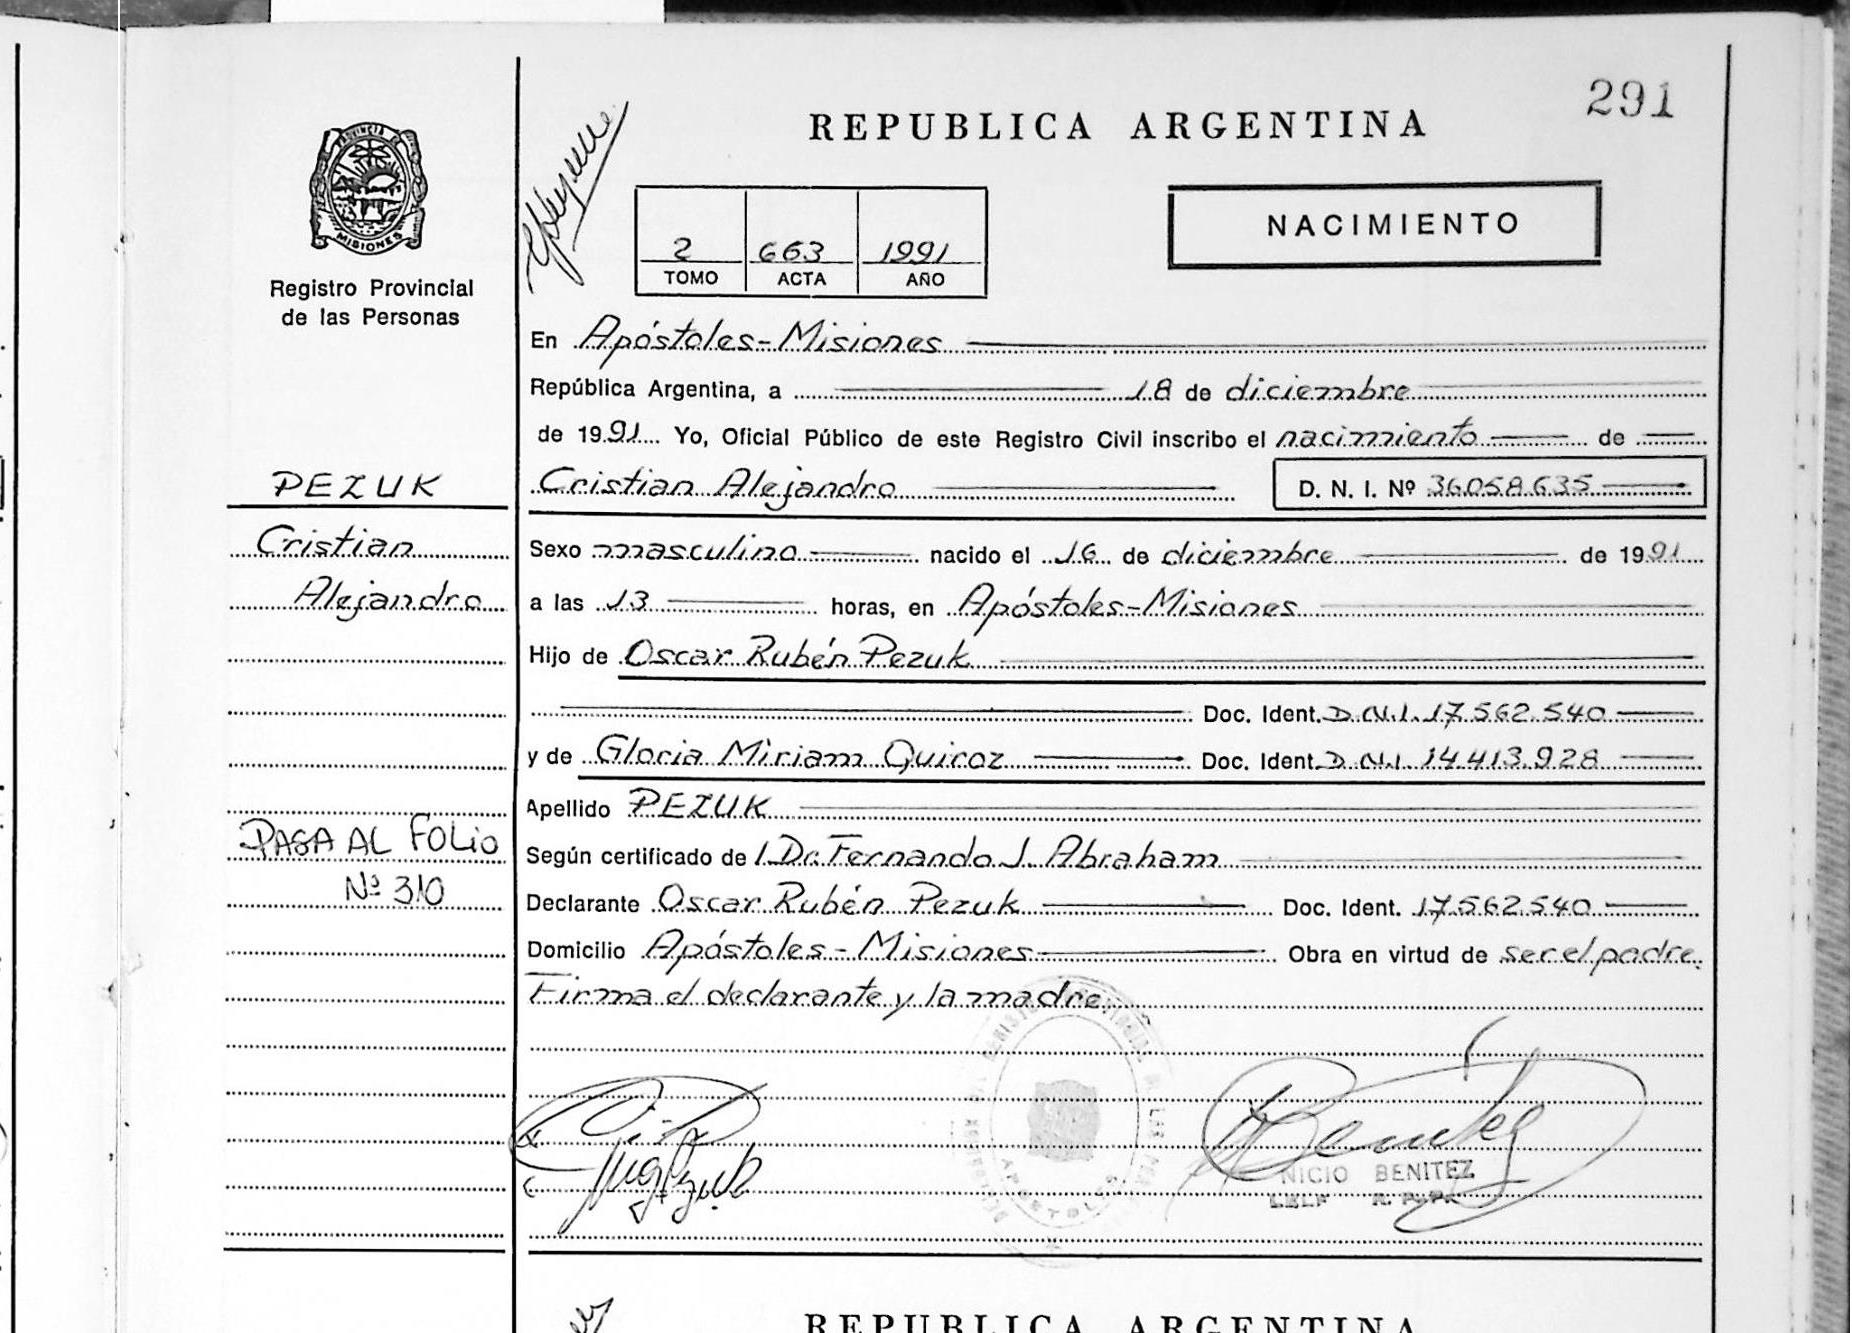 291
REPUBLICA ARGENTINA
PROVINCIA DE
MISIONES
Registro Provincial
de las Personas
2 663 1991
TOMO ACTA AÑO
NACIMIENTO
En Apóstoles-Misiones
República Argentina, a 18 de diciembre
de 1991 Yo, Oficial Público de este Registro Civil inscribo el nacimiento de
PEZUK
Cristian Alejandro D. N. I. Nº 36.058.635
Cristian
Sexo masculino nacido el 16 de diciembre de 1991
Alejandro
a las 13 horas, en Apóstoles-Misiones
Hijo de Oscar Rubén Pezuk
Doc. Ident. D.N.I. 17.562.540
y de Gloria Miriam Quiroz Doc. Ident. D.N.I. 14.413.928
Apellido PEZUK
PASA AL FOLIO
Nº 310
Según certificado de / Dr. Fernando J. Abraham
Declarante Oscar Rubén Pezuk Doc. Ident. 17.562.540
Domicilio Apóstoles-Misiones Obra en virtud de ser el padre.
Firma el declarante y la madre.
APOSTOLES
Benitez
NICIO BENITEZ
REPUBLICA ARGENTINA